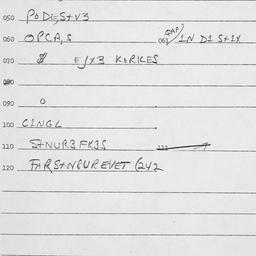 050 PODE,S+V3
060 OPCA,S 061 GAP? / IN D1 S+1X
070 $ E/X3 KORKES
080
090 0
100 CINGL
110 S+NUR3FK3S
120 FARS+NGUREVET (242